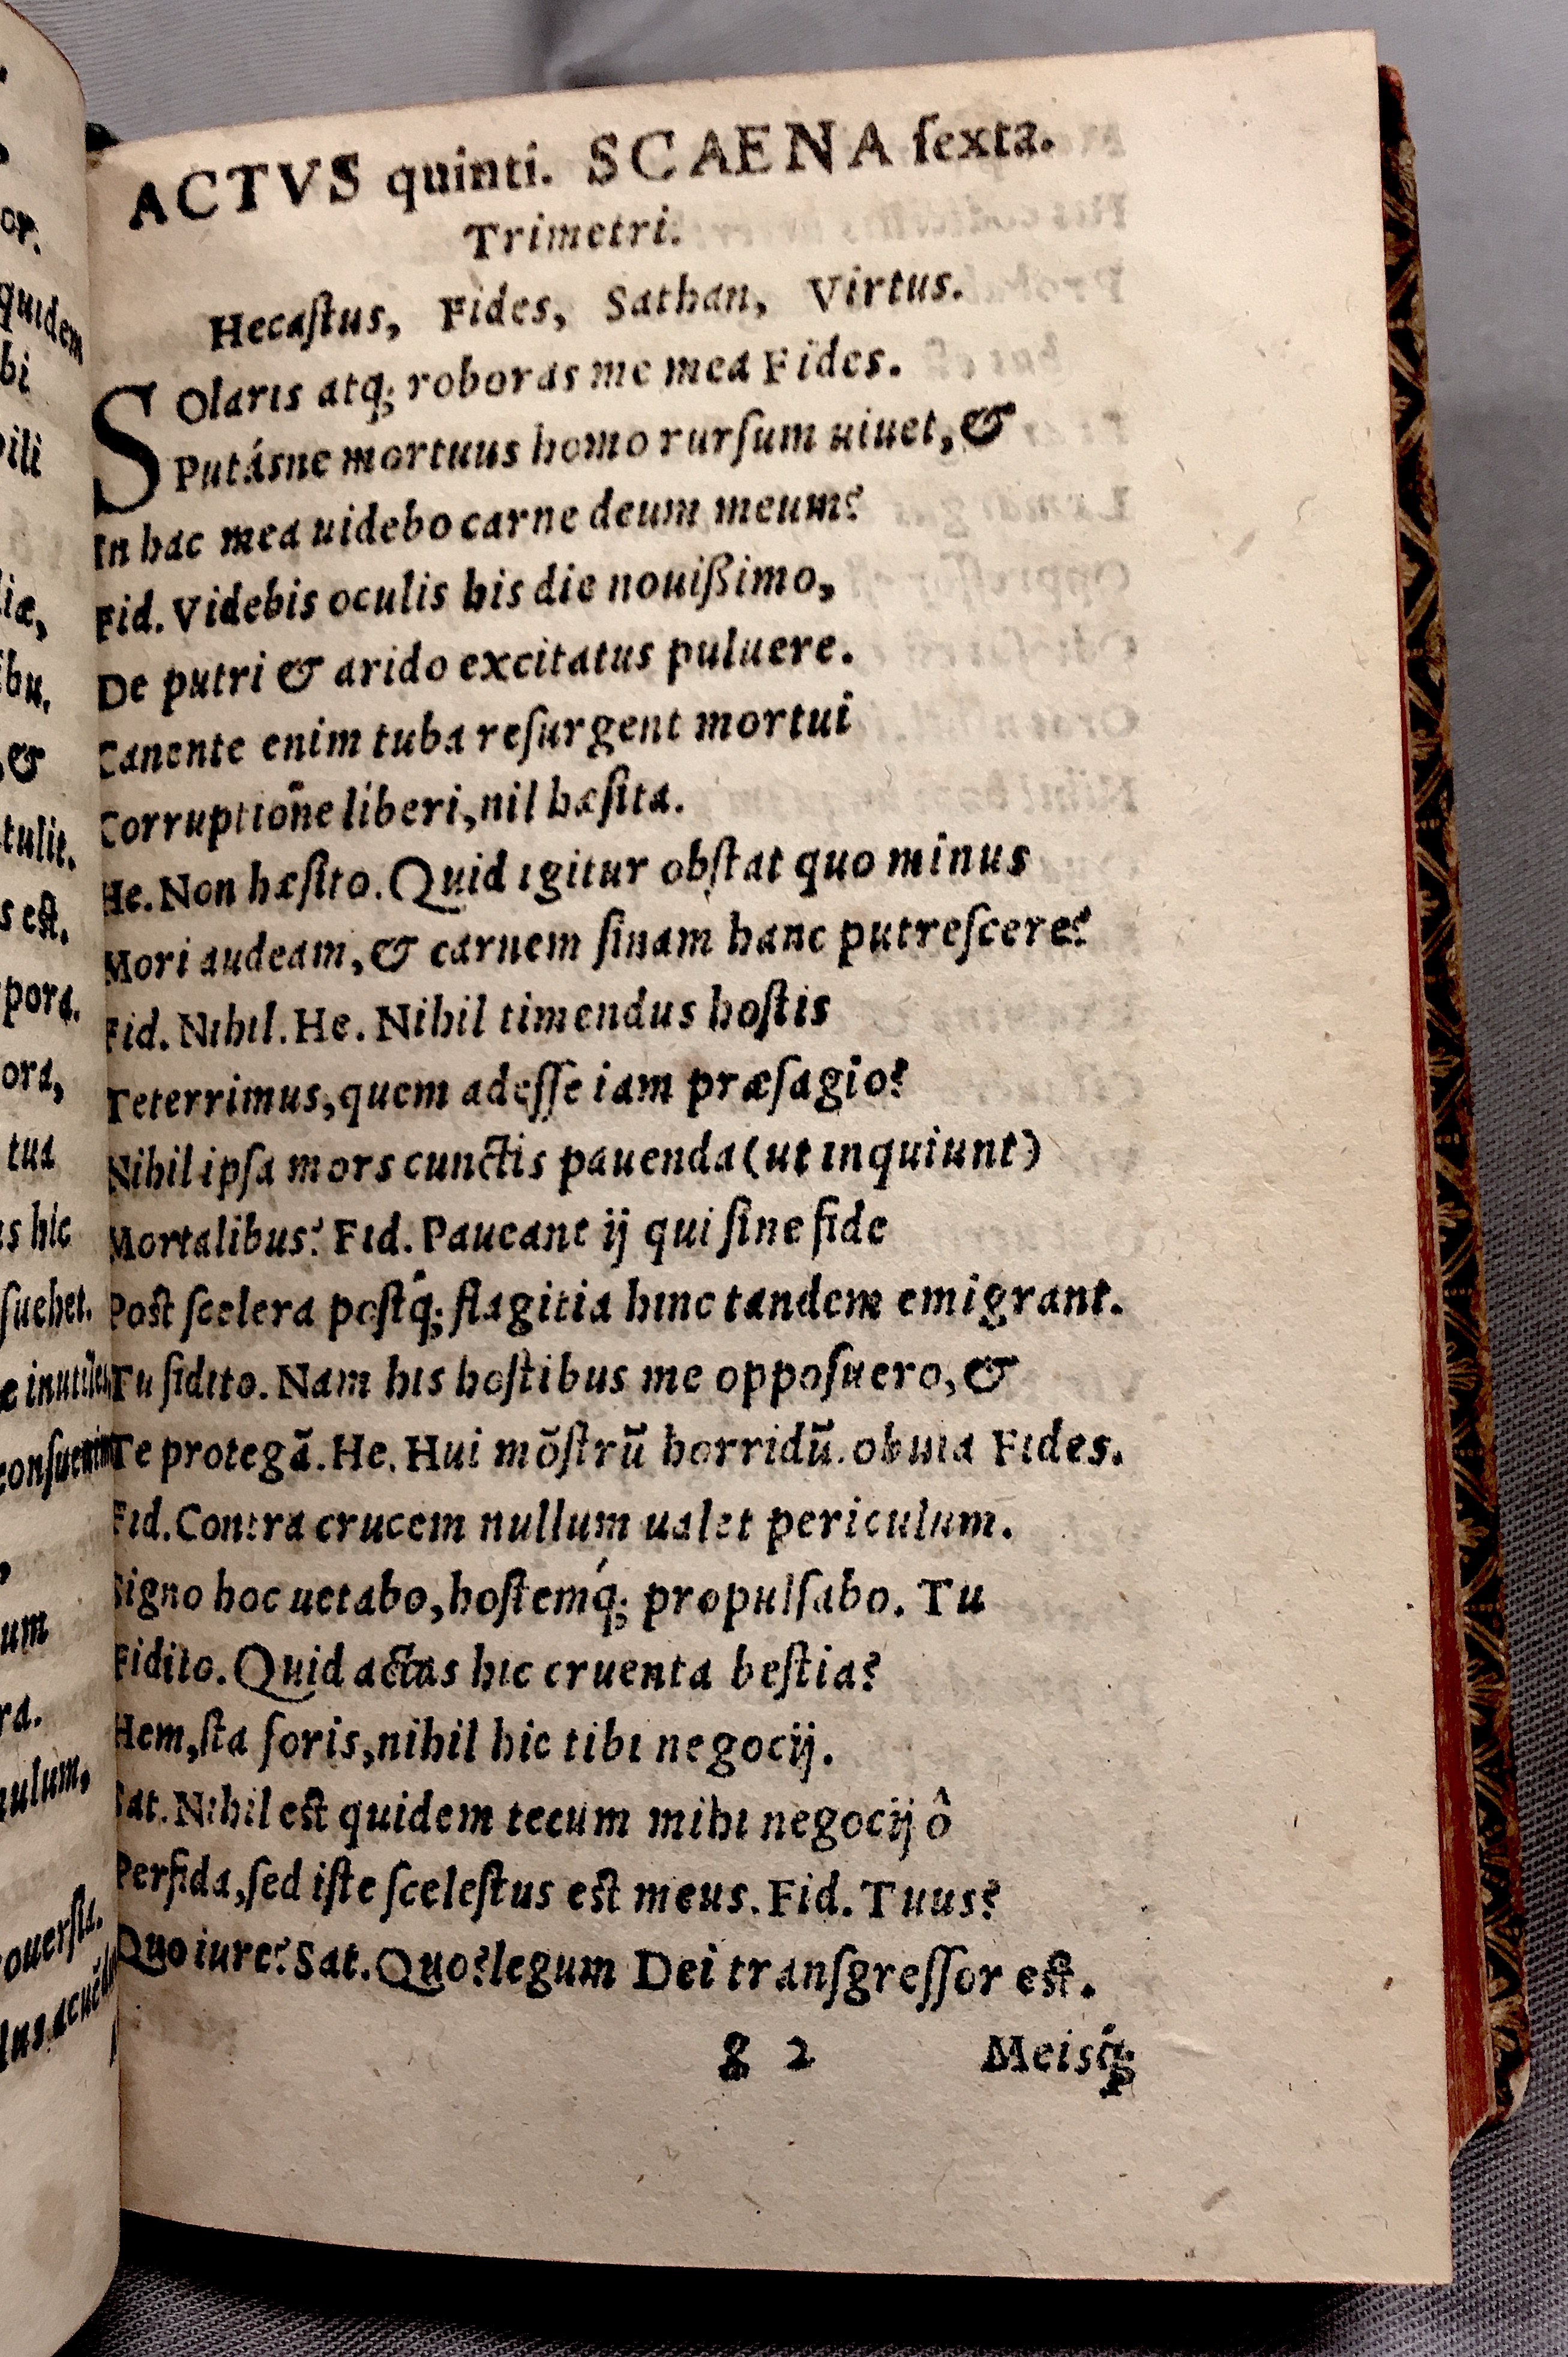 ACTVS quinti. SCAENA ſexta.
Trimetri.
Hecaſtus, Fides, Sathan, Virtus.
SOlaris atq; roboras me mea Fides.
Putásne mortuus homo rurſum uiuet, &
In hac mea uidebo carne deum meum?
Fid. Videbis oculis his die nouißimo,
De putri & arido excitatus puluere.
Canente enim tuba reſurgent mortui
Corruptiõne liberi, nil hæſita.
He. Non hæſito. Quid igitur obſtat quo minus
Mori audeam, & carnem ſinam hanc putreſcere?
Fid. Nihil. He. Nihil timendus hoſtis
Teterrimus, quem adeſſe iam præſagio?
Nihil ipſa mors cunctis pauenda (ut inquiunt)
Mortalibus? Fid. Paueant ij qui ſine fide
Poſt ſcelera poſtq́; flagitia hinc tandem emigrant.
Tu fidito. Nam his hoſtibus me oppoſuero, &
Te protegã. He. Hui mõſtrũ horridũ. obuia Fides.
Fid. Contra crucem nullum ualet periculum.
Signo hoc uetabo, hoſtemq́; propulſabo. Tu
Fidito. Quid actas hic cruenta beſtia?
Hem, ſta foris, nihil hic tibi negocij.
Sat. Nihil eſt quidem tecum mihi negocij ô
Perfida, ſed iſte ſceleſtus eſt meus. Fid. Tuus?
Quo iure? Sat. Quo? legum Dei tranſgreſſor eſt.
g 2 Meisq́;
or.
quidem
bi
liæ,
ibu.
, &
tulit.
s eſt.
pora.
ora,
tua
hic
ſuehet.
e inutiles
,
um
ra.